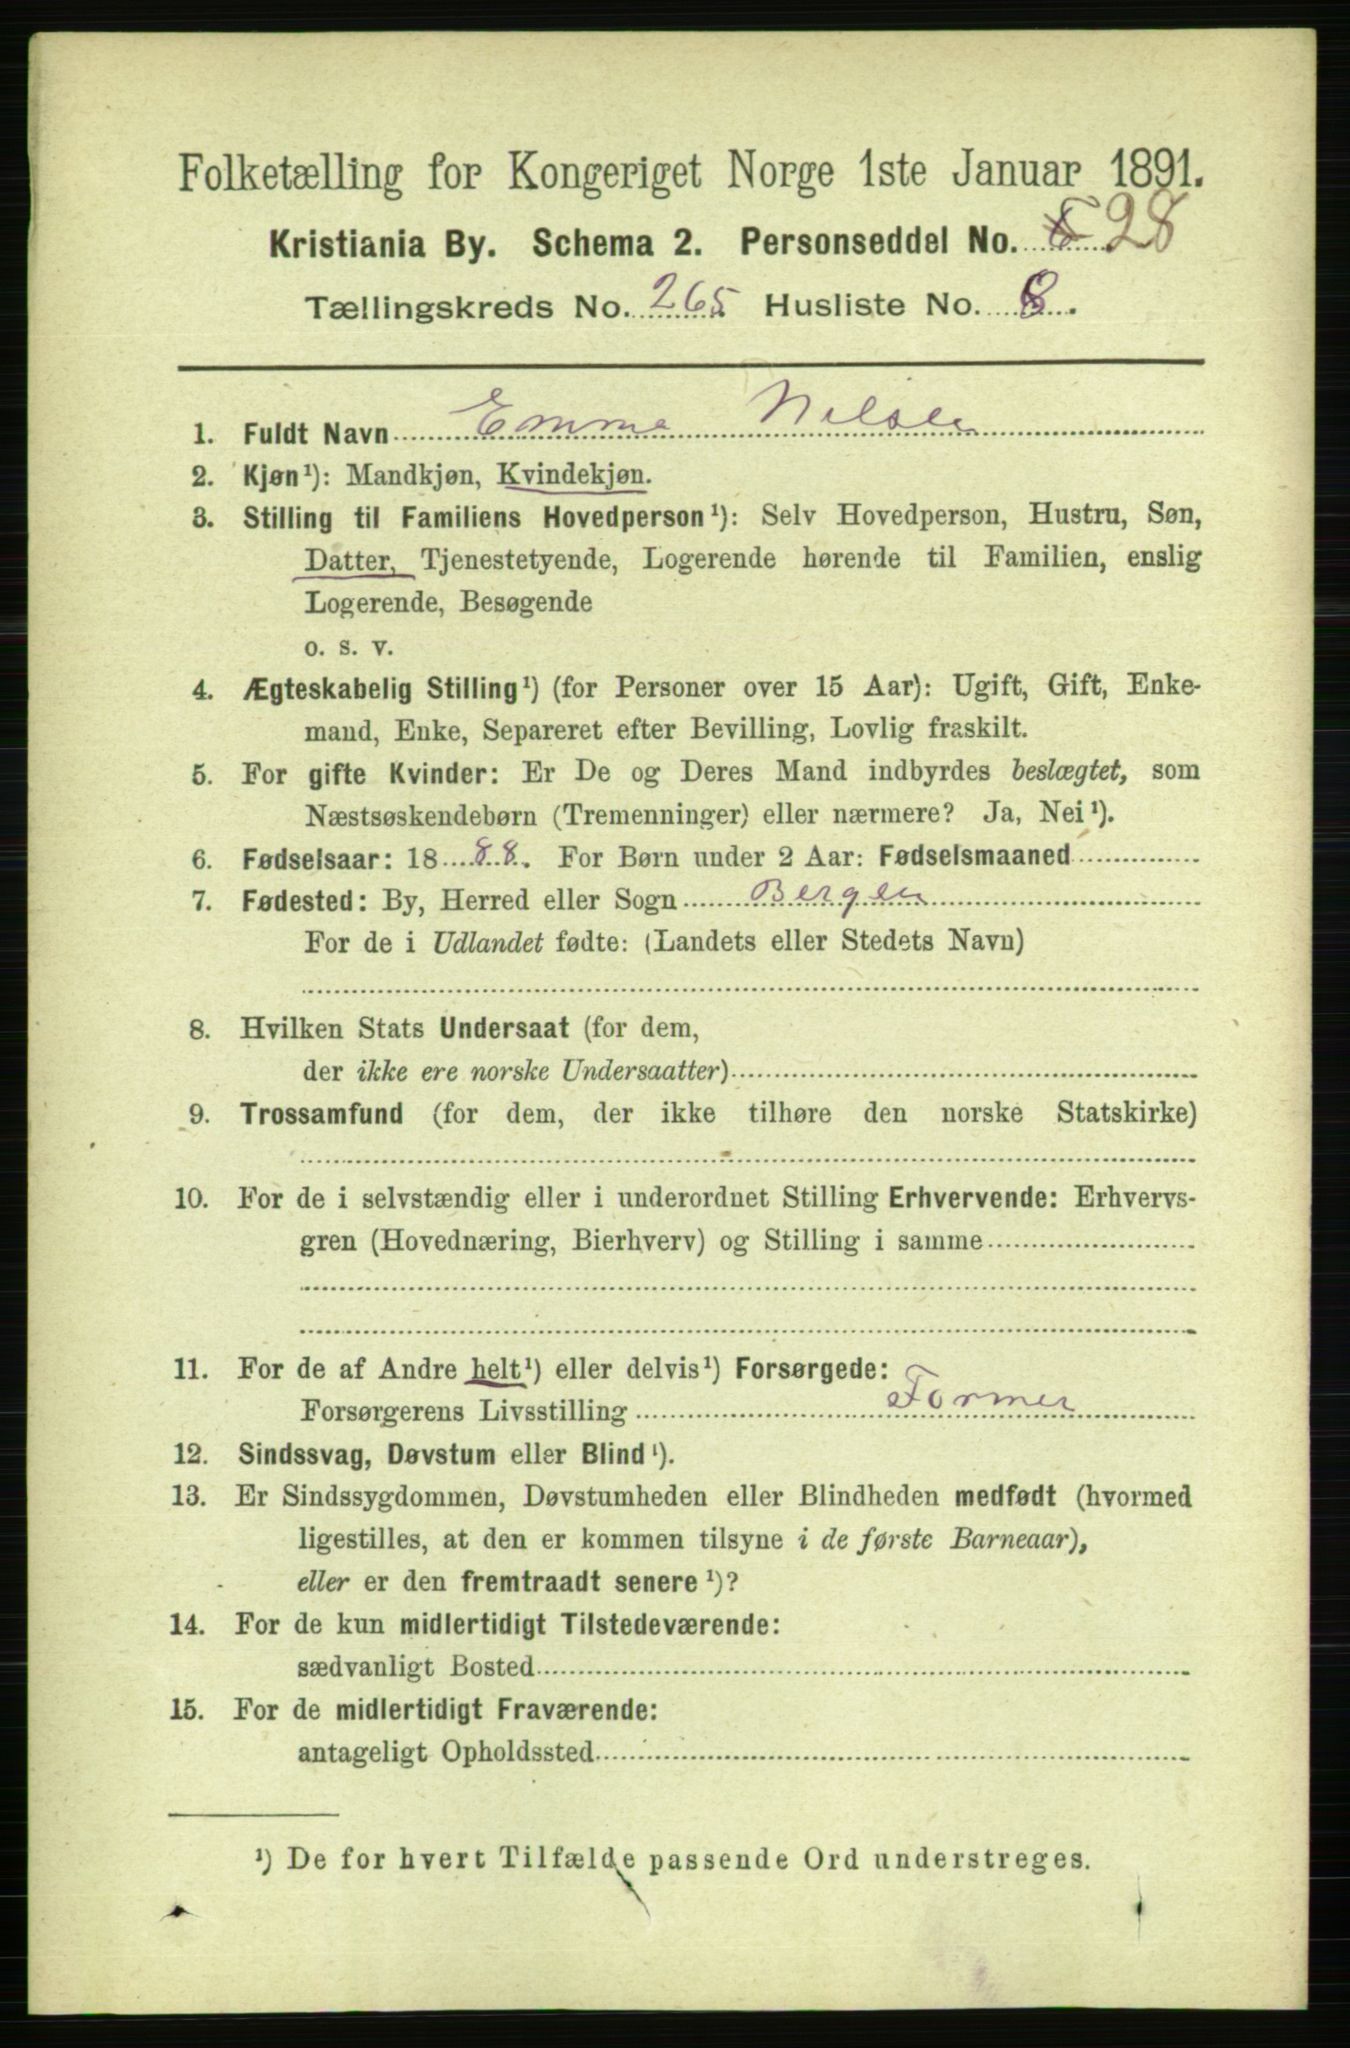 Folketælling for Kongeriget Norge 1ste Januar 1891.
Kristiania By. Schema 2. Personseddel No. 28
Tællingskreds No. 265 Husliste No. 8.
1. Fuldt Navn Emma Nilsen
2. Kjøn¹): Mandkjøn, Kvindekjøn.
3. Stilling til Familiens Hovedperson¹): Selv Hovedperson, Hustru, Søn,
Datter, Tjenestetyende, Logerende hørende til Familien, enslig
Logerende, Besøgende
o. s. v.
4. Ægteskabelig Stilling¹) (for Personer over 15 Aar): Ugift, Gift, Enke-
mand, Enke, Separeret efter Bevilling, Lovlig fraskilt.
5. For gifte Kvinder: Er De og Deres Mand indbyrdes beslægtet, som
Næstsøskendebørn (Tremenninger) eller nærmere? Ja, Nei¹).
6. Fødselsaar: 1888. For Børn under 2 Aar: Fødselsmaaned
7. Fødested: By, Herred eller Sogn Bergen
For de i Udlandet fødte: (Landets eller Stedets Navn)
8. Hvilken Stats Undersaat (for dem,
der ikke ere norske Undersaatter)
9. Trossamfund (for dem, der ikke tilhøre den norske Statskirke)
10. For de i selvstændig eller i underordnet Stilling Erhvervende: Erhvervs-
gren (Hovednæring, Bierhverv) og Stilling i samme
11. For de af Andre helt¹) eller delvis¹) Forsørgede:
Forsørgerens Livsstilling Former
12. Sindssvag, Døvstum eller Blind¹).
13. Er Sindssygdommen, Døvstumheden eller Blindheden medfødt (hvormed
ligestilles, at den er kommen tilsyne i de første Barneaar),
eller er den fremtraadt senere¹)?
14. For de kun midlertidigt Tilstedeværende:
sædvanligt Bosted
15. For de midlertidigt Fraværende:
antageligt Opholdssted
¹) De for hvert Tilfælde passende Ord understreges.